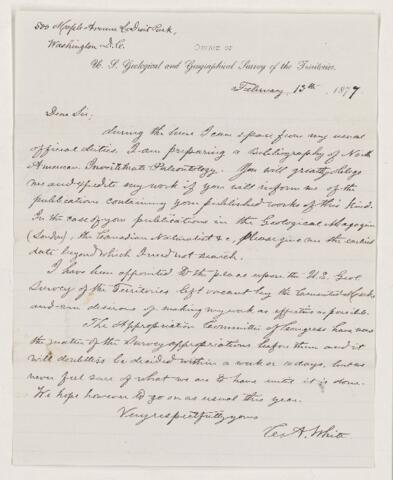 500 Maple Avenue Le Droit Park,
Washington D.C.
OFFICE OF
U. S. Geological and Geographical Survey of the Territories.
February 13th 1877
Dear Sir;
during the time I can spare from my usual
official duties, I am preparing a bibliography of North
American Invertebrate Paleontology. You will greatly oblige
me and expedite my work if you will inform me of the
publications containing your published works of this kind.
In the case of your publications in the Geological Magazine
(London), the Canadian Naturalist &c, please give me the earliest
date beyond which I need not search.
I have been appointed to the place upon the U.S. Geol.
Survey of the Territories left vacant by the lamented Meek,
and am desirous of making my work as effective as possible.
The Appropriation Committee of Congress have now
the matter of the Survey appropriations before them and it
will doubtless be decided within a week or so days, but we
never feel sure of what we are to have until it is done.
We hope however to go on as usual this year.
Very respectfully yours
C. A. White